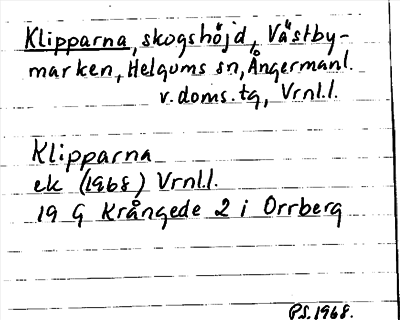 Klipparna, skogshöjd, Västby-
marken, Helgums sn, Ångermanl.
v.doms.tg, Vrnl.l.
Klipparna
ek (1968) Vrnl.l.
19 G Krångede 2 i Orrberg
PS.1968.